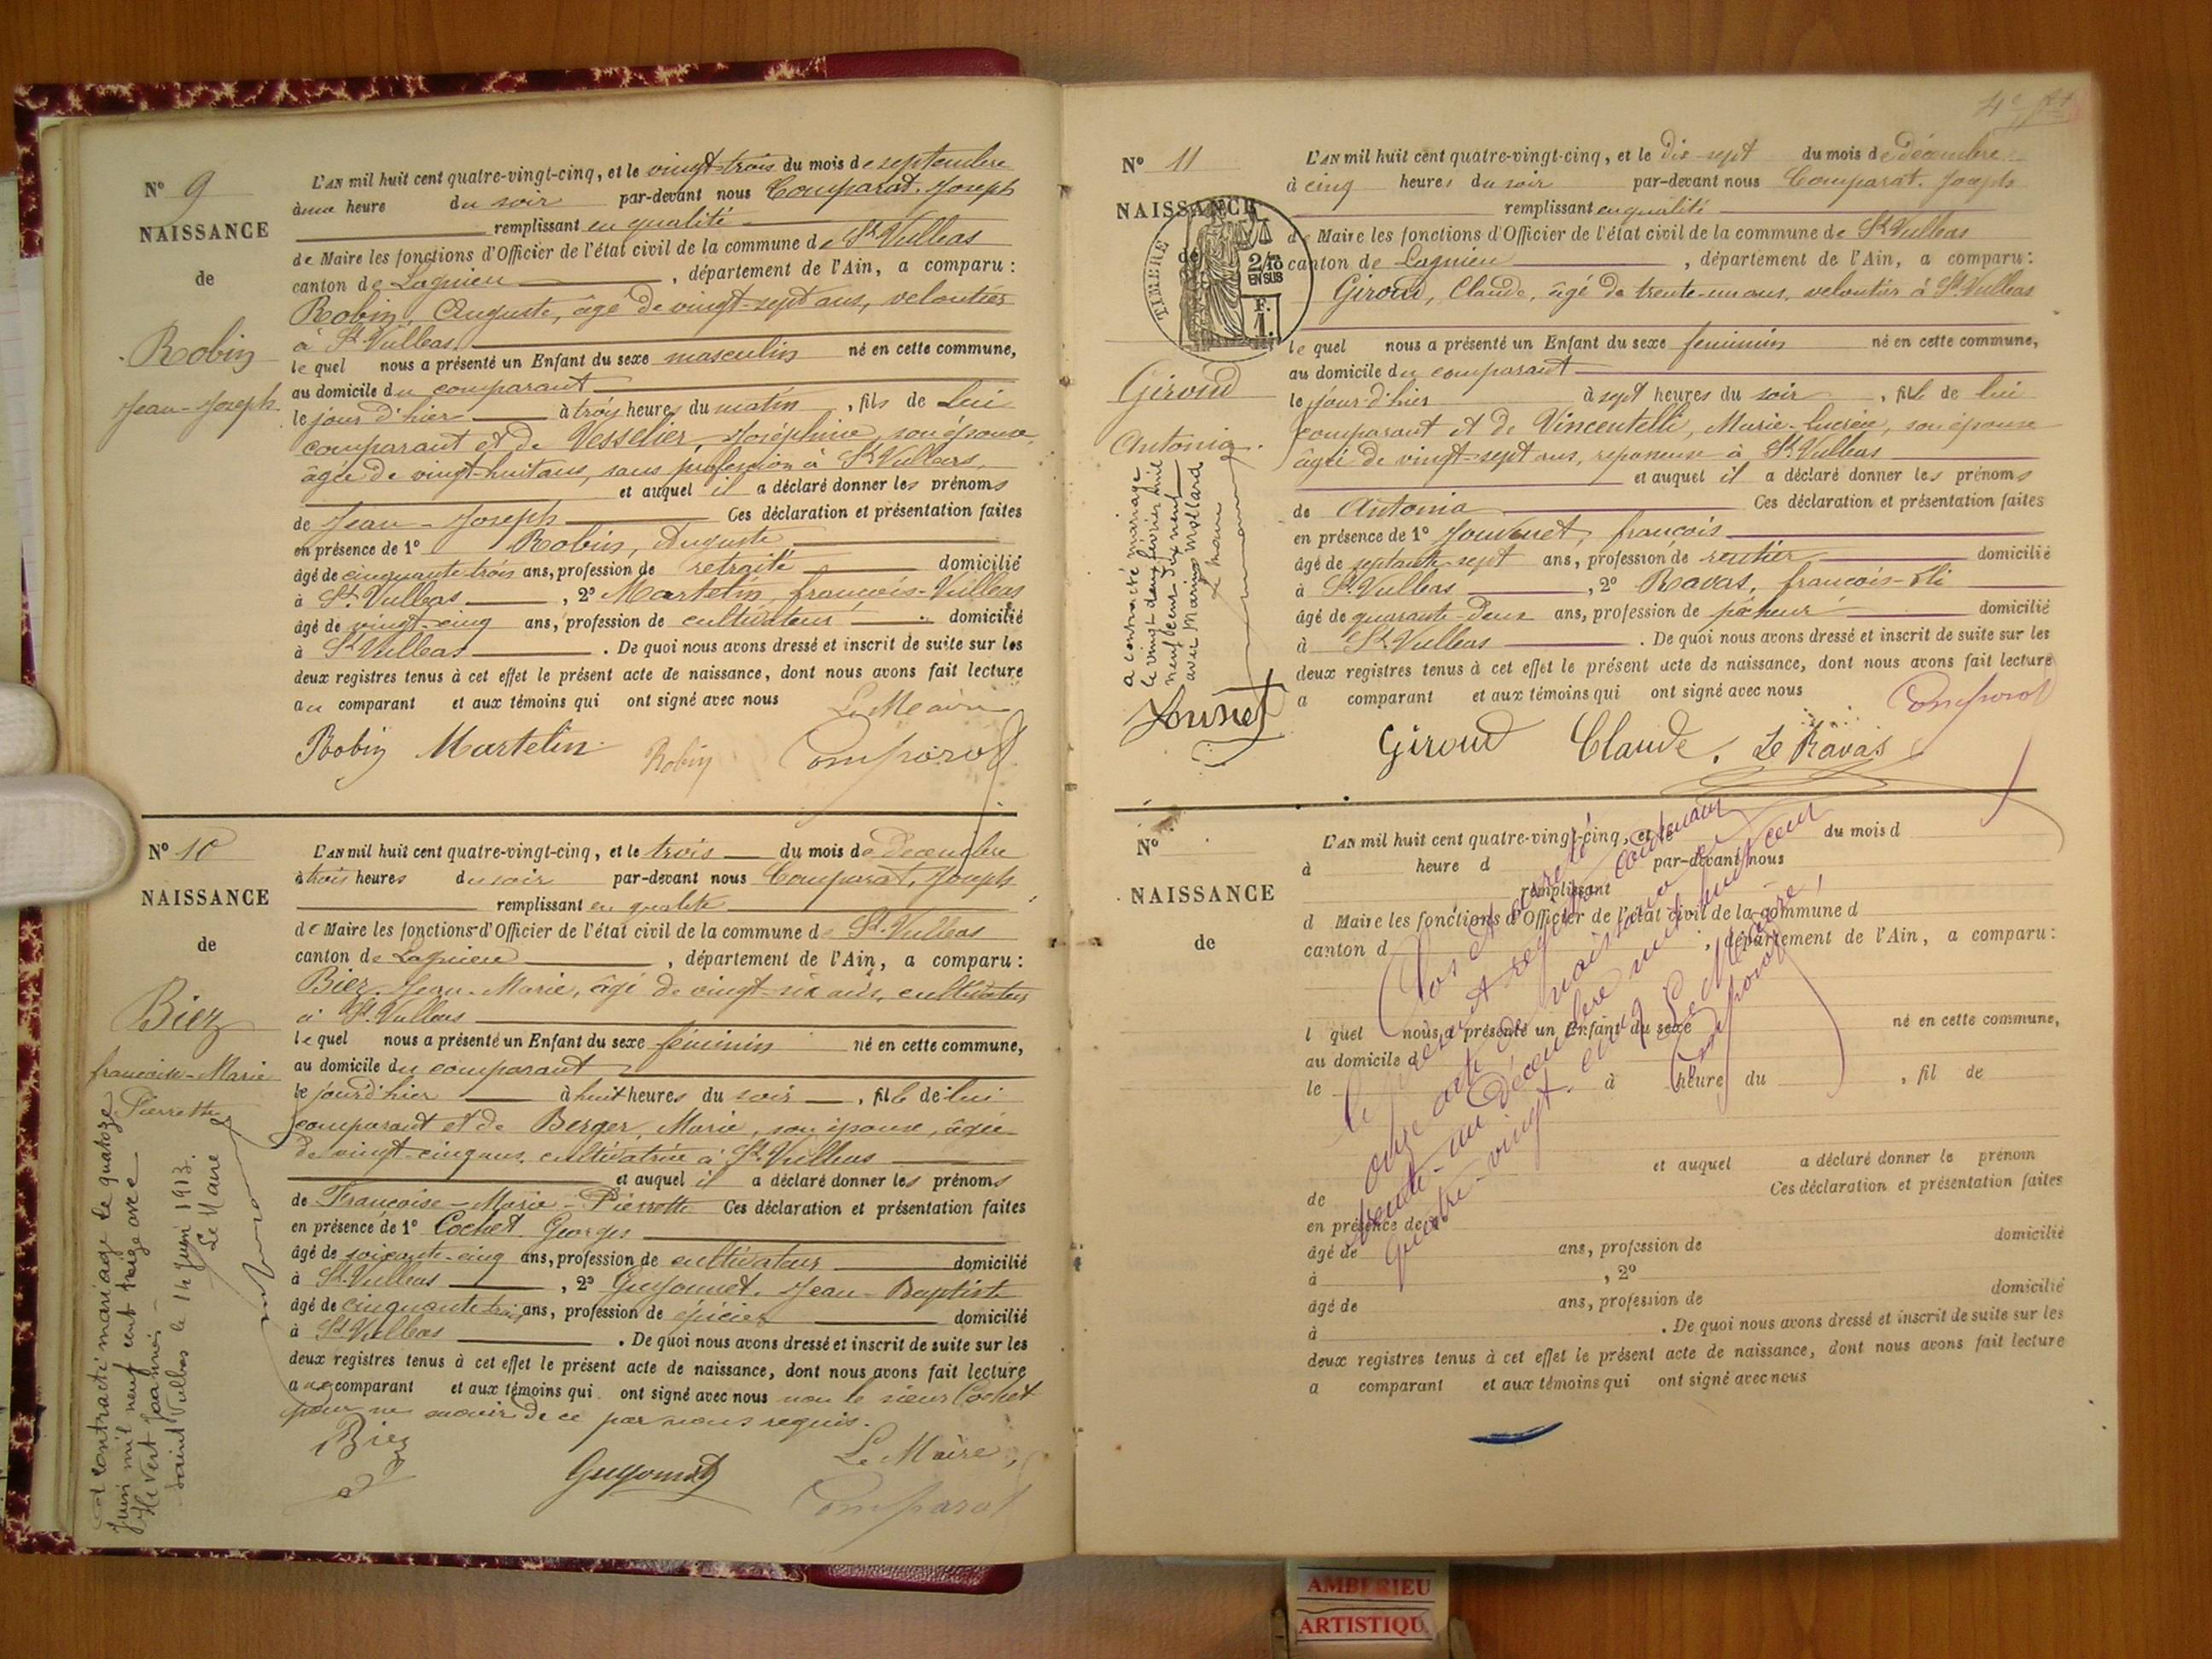 N° 9
NAISSANCE
de
Robin
Jean-Joseph
L'AN mil huit cent quatre-vingt-cinq, et le vingt-trois du mois de septembre
à une heure du soir par-devant nous Comparat, Joseph
remplissant en qualité
de Maire les fonctions d'Officier de l'état civil de la commune de St Vulbas
canton de Lagnieu , département de l'Ain, a comparu :
Robin, Auguste, âgé de vingt-sept ans, veloutier
à St Vulbas.
le quel nous a présenté un Enfant du sexe masculin né en cette commune,
au domicile du comparant
le jour d'hier à trois heures du matin , fils de Lui
comparant et de Vesselier Joséphine, son épouse,
âgée de vingt-huit ans, sans profession à St Vulbas,
et auquel il a déclaré donner les prénoms
de Jean-Joseph Ces déclaration et présentation faites
en présence de 1° Robin, Auguste
âgé de cinquante trois ans, profession de retraité domicilié
à St. Vulbas , 2° Martelin, françois-Vulbas
âgé de vingt-cinq ans, profession de cultivateur domicilié
à St Vulbas . De quoi nous avons dressé et inscrit de suite sur les
deux registres tenus à cet effet le présent acte de naissance, dont nous avons fait lecture
au comparant et aux témoins qui ont signé avec nous Le Maire
Robin Martelin Robin Comparat
N° 10
NAISSANCE
de
Biez
francoise-Marie
Pierrette
a contracté mariage le quatorze
Juin mil neuf cent treize avec
Hivert Joannès
Saint Vulbas le 14 Juin 1913.
Le Maire
L'AN mil huit cent quatre-vingt-cinq, et le trois du mois de Decembre
à trois heures du soir par-devant nous Comparat, Joseph
remplissant en qualité
de Maire les fonctions d'Officier de l'état civil de la commune de St. Vulbas
canton de Lagnieu , département de l'Ain, a comparu :
Biez, Jean-Marie, âgé de vingt-six ans, cultivateur
à St. Vulbas
le quel nous a présenté un Enfant du sexe féminin né en cette commune,
au domicile du comparant
le jour d'hier à huit heures du soir , fille de lui
comparant et de Berger, Marie, son épouse, âgée
de vingt-cinq ans, cultivatrice à St. Vulbas
et auquel il a déclaré donner les prénoms
de Francoise-Marie-Pierrette Ces déclaration et présentation faites
en présence de 1° Cochet Georges
âgé de soixante-cinq ans, profession de cultivateur domicilié
à St. Vulbas , 2° Guyonnet, Jean-Baptiste
âgé de cinquante trois ans, profession de épicier domicilié
à St. Vulbas . De quoi nous avons dressé et inscrit de suite sur les
deux registres tenus à cet effet le présent acte de naissance, dont nous avons fait lecture
au comparant et aux témoins qui ont signé avec nous non le sieur Cochet
pour ne savoir de ce par nous requis.
Biez Guyonnet Le Maire,
Comparat
N° 11
NAISSANCE
de
TIMBRE
2/10
EN SUS
F.
1.
Giroud
Antonia.
a contracté mariage
le vingt deux février mil
neuf cent dix neuf
avec Marius Mollard
Le Maire
L'AN mil huit cent quatre-vingt-cinq, et le dix-sept du mois de décembre
à cinq heures du soir par-devant nous Comparat, Joseph
remplissant en qualité
de Maire les fonctions d'Officier de l'état civil de la commune de St Vulbas
canton de Lagnieu , département de l'Ain, a comparu :
Giroud, Claude, âgé de trente-un ans, veloutier à St. Vulbas
le quel nous a présenté un Enfant du sexe feminin né en cette commune,
au domicile du comparant
le jour d'hier à sept heures du soir , fille de lui
comparant et de Vincentelli, Marie-Lucrèce, son épouse
âgée de vingt-sept ans, repasseuse à St. Vulbas
et auquel il a déclaré donner les prénoms
de Antonia Ces déclaration et présentation faites
en présence de 1° Jouvenet, francois
âgé de septante-sept ans, profession de rentier domicilié
à St. Vulbas , 2° Ravas, francois-Eli
âgé de quarante-deux ans, profession de pêcheur domicilié
à St. Vulbas . De quoi nous avons dressé et inscrit de suite sur les
deux registres tenus à cet effet le présent acte de naissance, dont nous avons fait lecture
a comparant et aux témoins qui ont signé avec nous Comparat
Giroud Claude. Le Ravas
N°
NAISSANCE
de
L'AN mil huit cent quatre-vingt-cinq, et le du mois d
à heure d par-devant nous
remplissant
d Maire les fonctions d'Officier de l'état civil de la commune d
canton d , département de l'Ain, a comparu :
l quel nous a présenté un Enfant du sexe né en cette commune,
au domicile d
le à heure du , fil de
et auquel a déclaré donner le prénom
de Ces déclaration et présentation faites
en présence de 1°
âgé de ans, profession de domicilié
à , 2°
âgé de ans, profession de domicilié
à . De quoi nous avons dressé et inscrit de suite sur les
deux registres tenus à cet effet le présent acte de naissance, dont nous avons fait lecture
a comparant et aux témoins qui ont signé avec nous
Clos et arrêté
le présent registre contenant
onze actes de naissance ce
trente-un Décembre mil huit cent
quatre-vingt-cinq Le Maire,
Comparat
AMBERIEU
ARTISTIQU